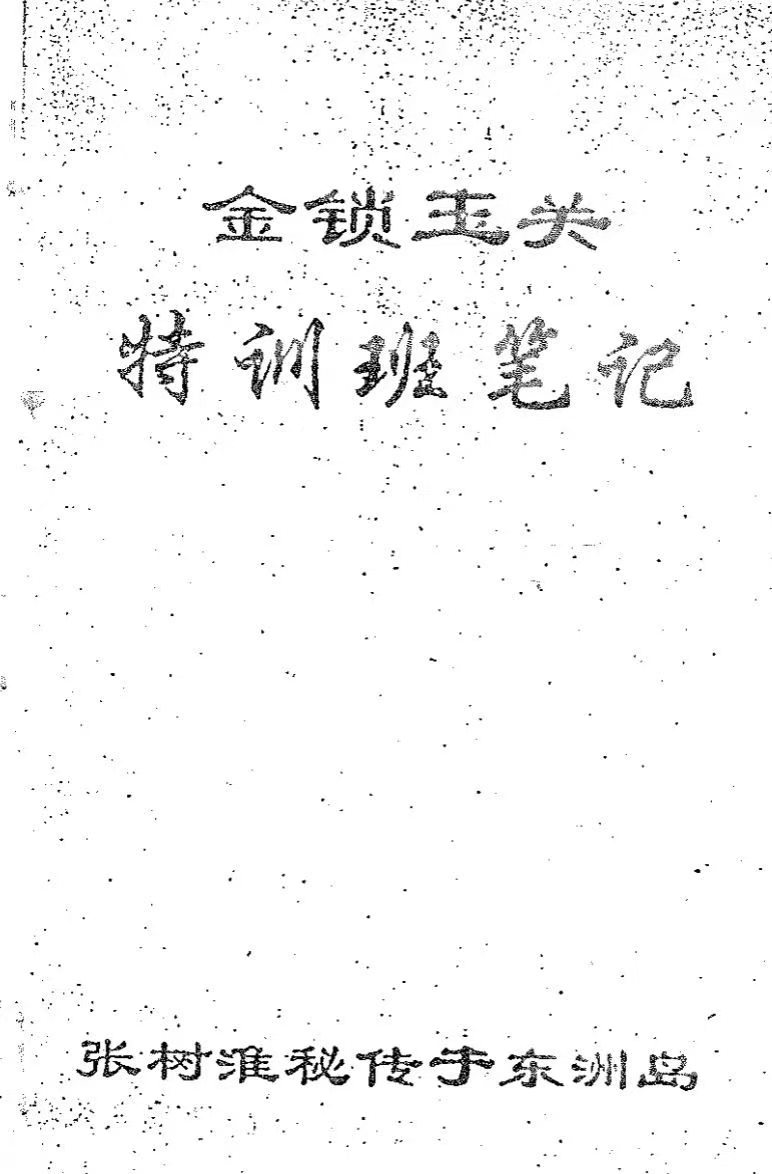 金锁玉关
特训班笔记
张树淮秘传于东洲岛